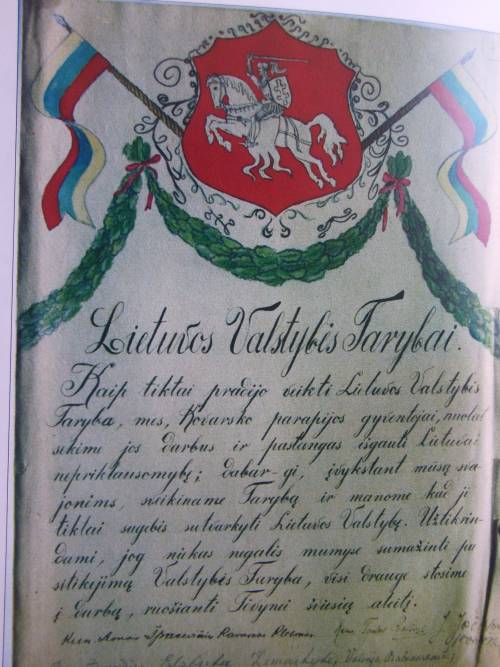 Lietuvos Valstybis Tarybai.
Kaip tiktai pradijo veikti Lietuvos Valstybis
Taryba, mes, Kovarsko parapijos gyventojai, nuolat
sekime jos darbus ir pastangas išgauti Lietuvai
nepriklausomybę; dabar-gi, įvykstant mūsų sva-
jonims, sveikiname Tarybą ir manome kad ji
tiktai sugebis sutvarkyti Lietuvos Valstybę. Užtikrin-
dami, jog niekas negalis mumyse sumažinti pa
sitikėjimą Valstybės Taryba, visi drauge stosime
į darbą, ruošianti Tėvynei šviesią ateitį.
Kun.